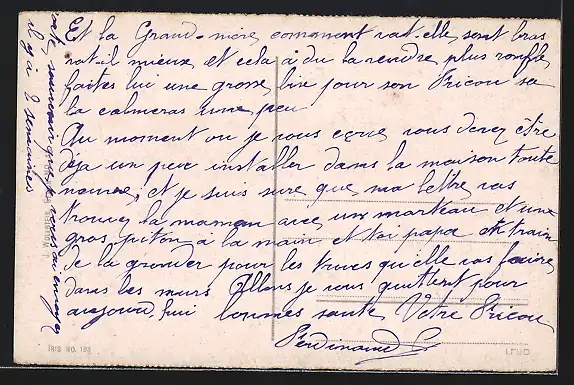 Et la Grand-mère comment vat-elle, sont bras
vat-il mieux et cela à du la rendre plus ronfle
faites lui une grosse bise pour son Pricou sa
la calmeras une peu
Au moment ou je vous ecrie vous devez être
déja un peu installer dans la maison toute
neuve; et je suis sure que ma lettre vas
trouvez la maman avec un marteau et une
gros piton à la main et toi papa en train
de la gronder pour les trucs qu'elle vas faire
dans les murs Allons je vous quittent pour
aujourd'hui bonnes sante Votre Pricou
Ferdinand
il y à 2 semaines
IRIS NO. 163